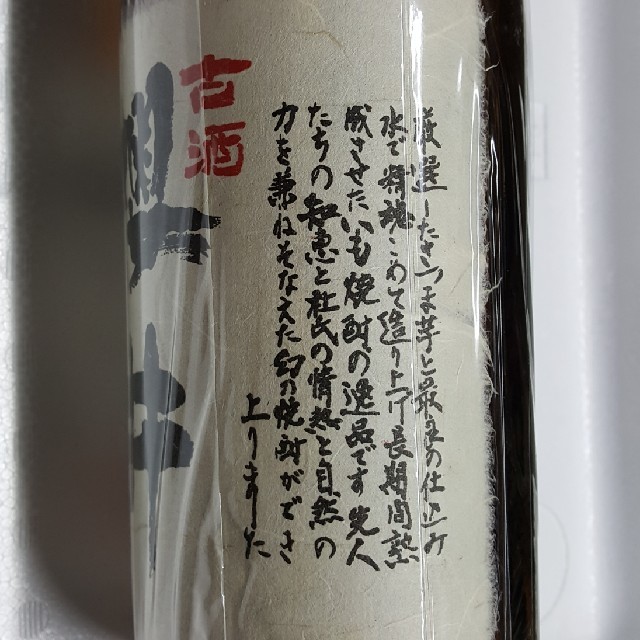 厳選したさつま芋と最良の仕込み
水で精魂こめて造り上げ長期間熟
成させたいも焼酎の逸品です先人
たちの知恵と杜氏の情熱と自然の
力を兼ねそなえた幻の焼酎ができ
上りました
古酒